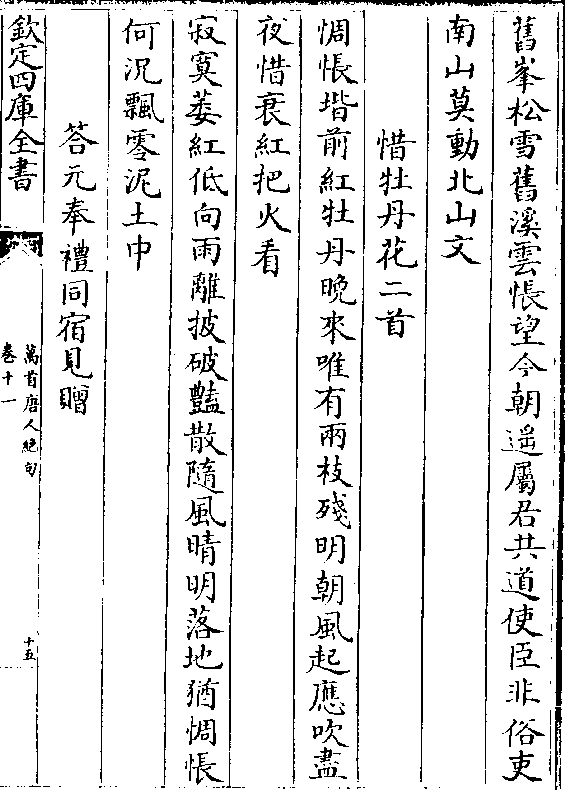 舊峯松雪舊溪雲悵望今朝遥屬君共道使臣非俗吏
南山莫動北山文
惜牡丹花二首
惆悵堦前紅牡丹晚來唯有兩枝殘明朝風起應吹盡
夜惜衰紅把火看
寂寞萎紅低向雨離披破豔散隨風晴明落地猶惆悵
何況飄零泥土中
答元奉禮同宿見贈
欽定四庫全書
萬首唐人絶句
卷十一
十五